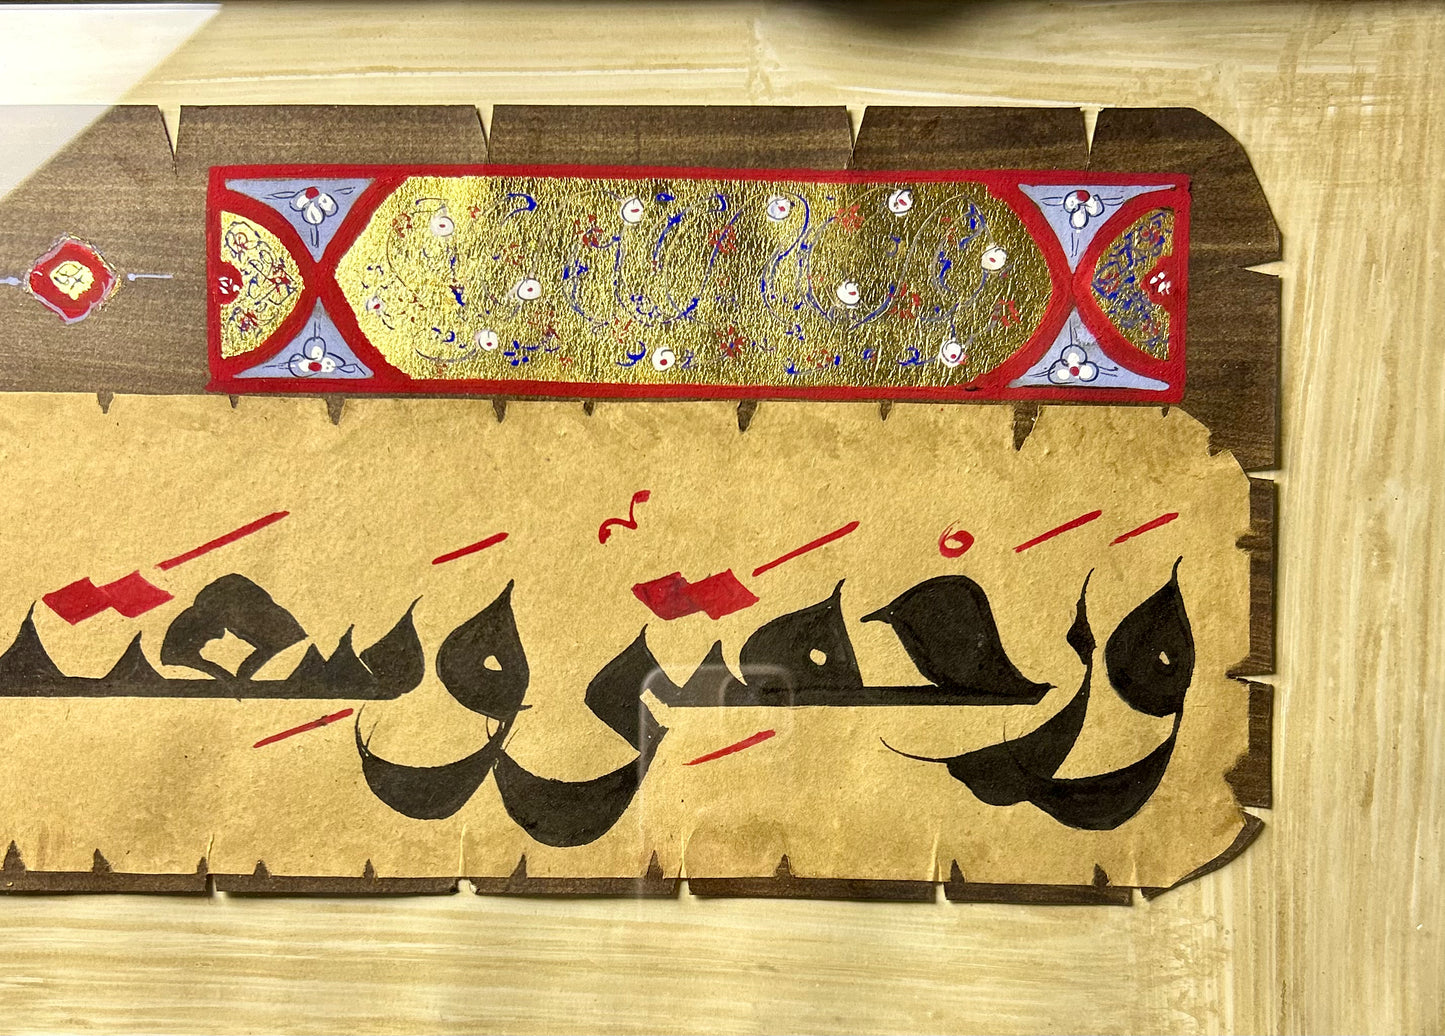 وَرَحْمَتِى وَسِعَت